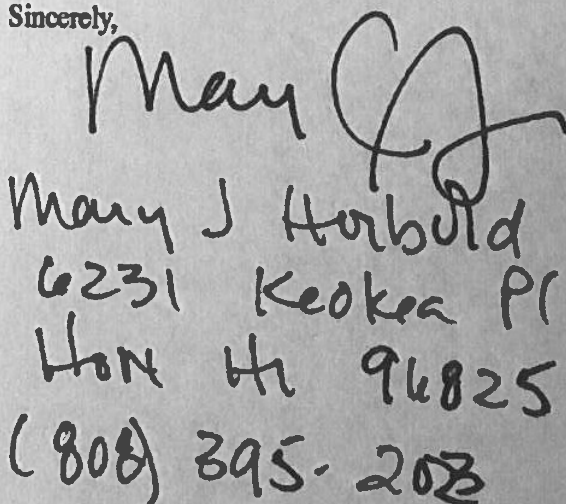 Sincerely,
Mary
Mary J Horbold
6231 Keokea Pl
HON HI 96825
(808) 395-